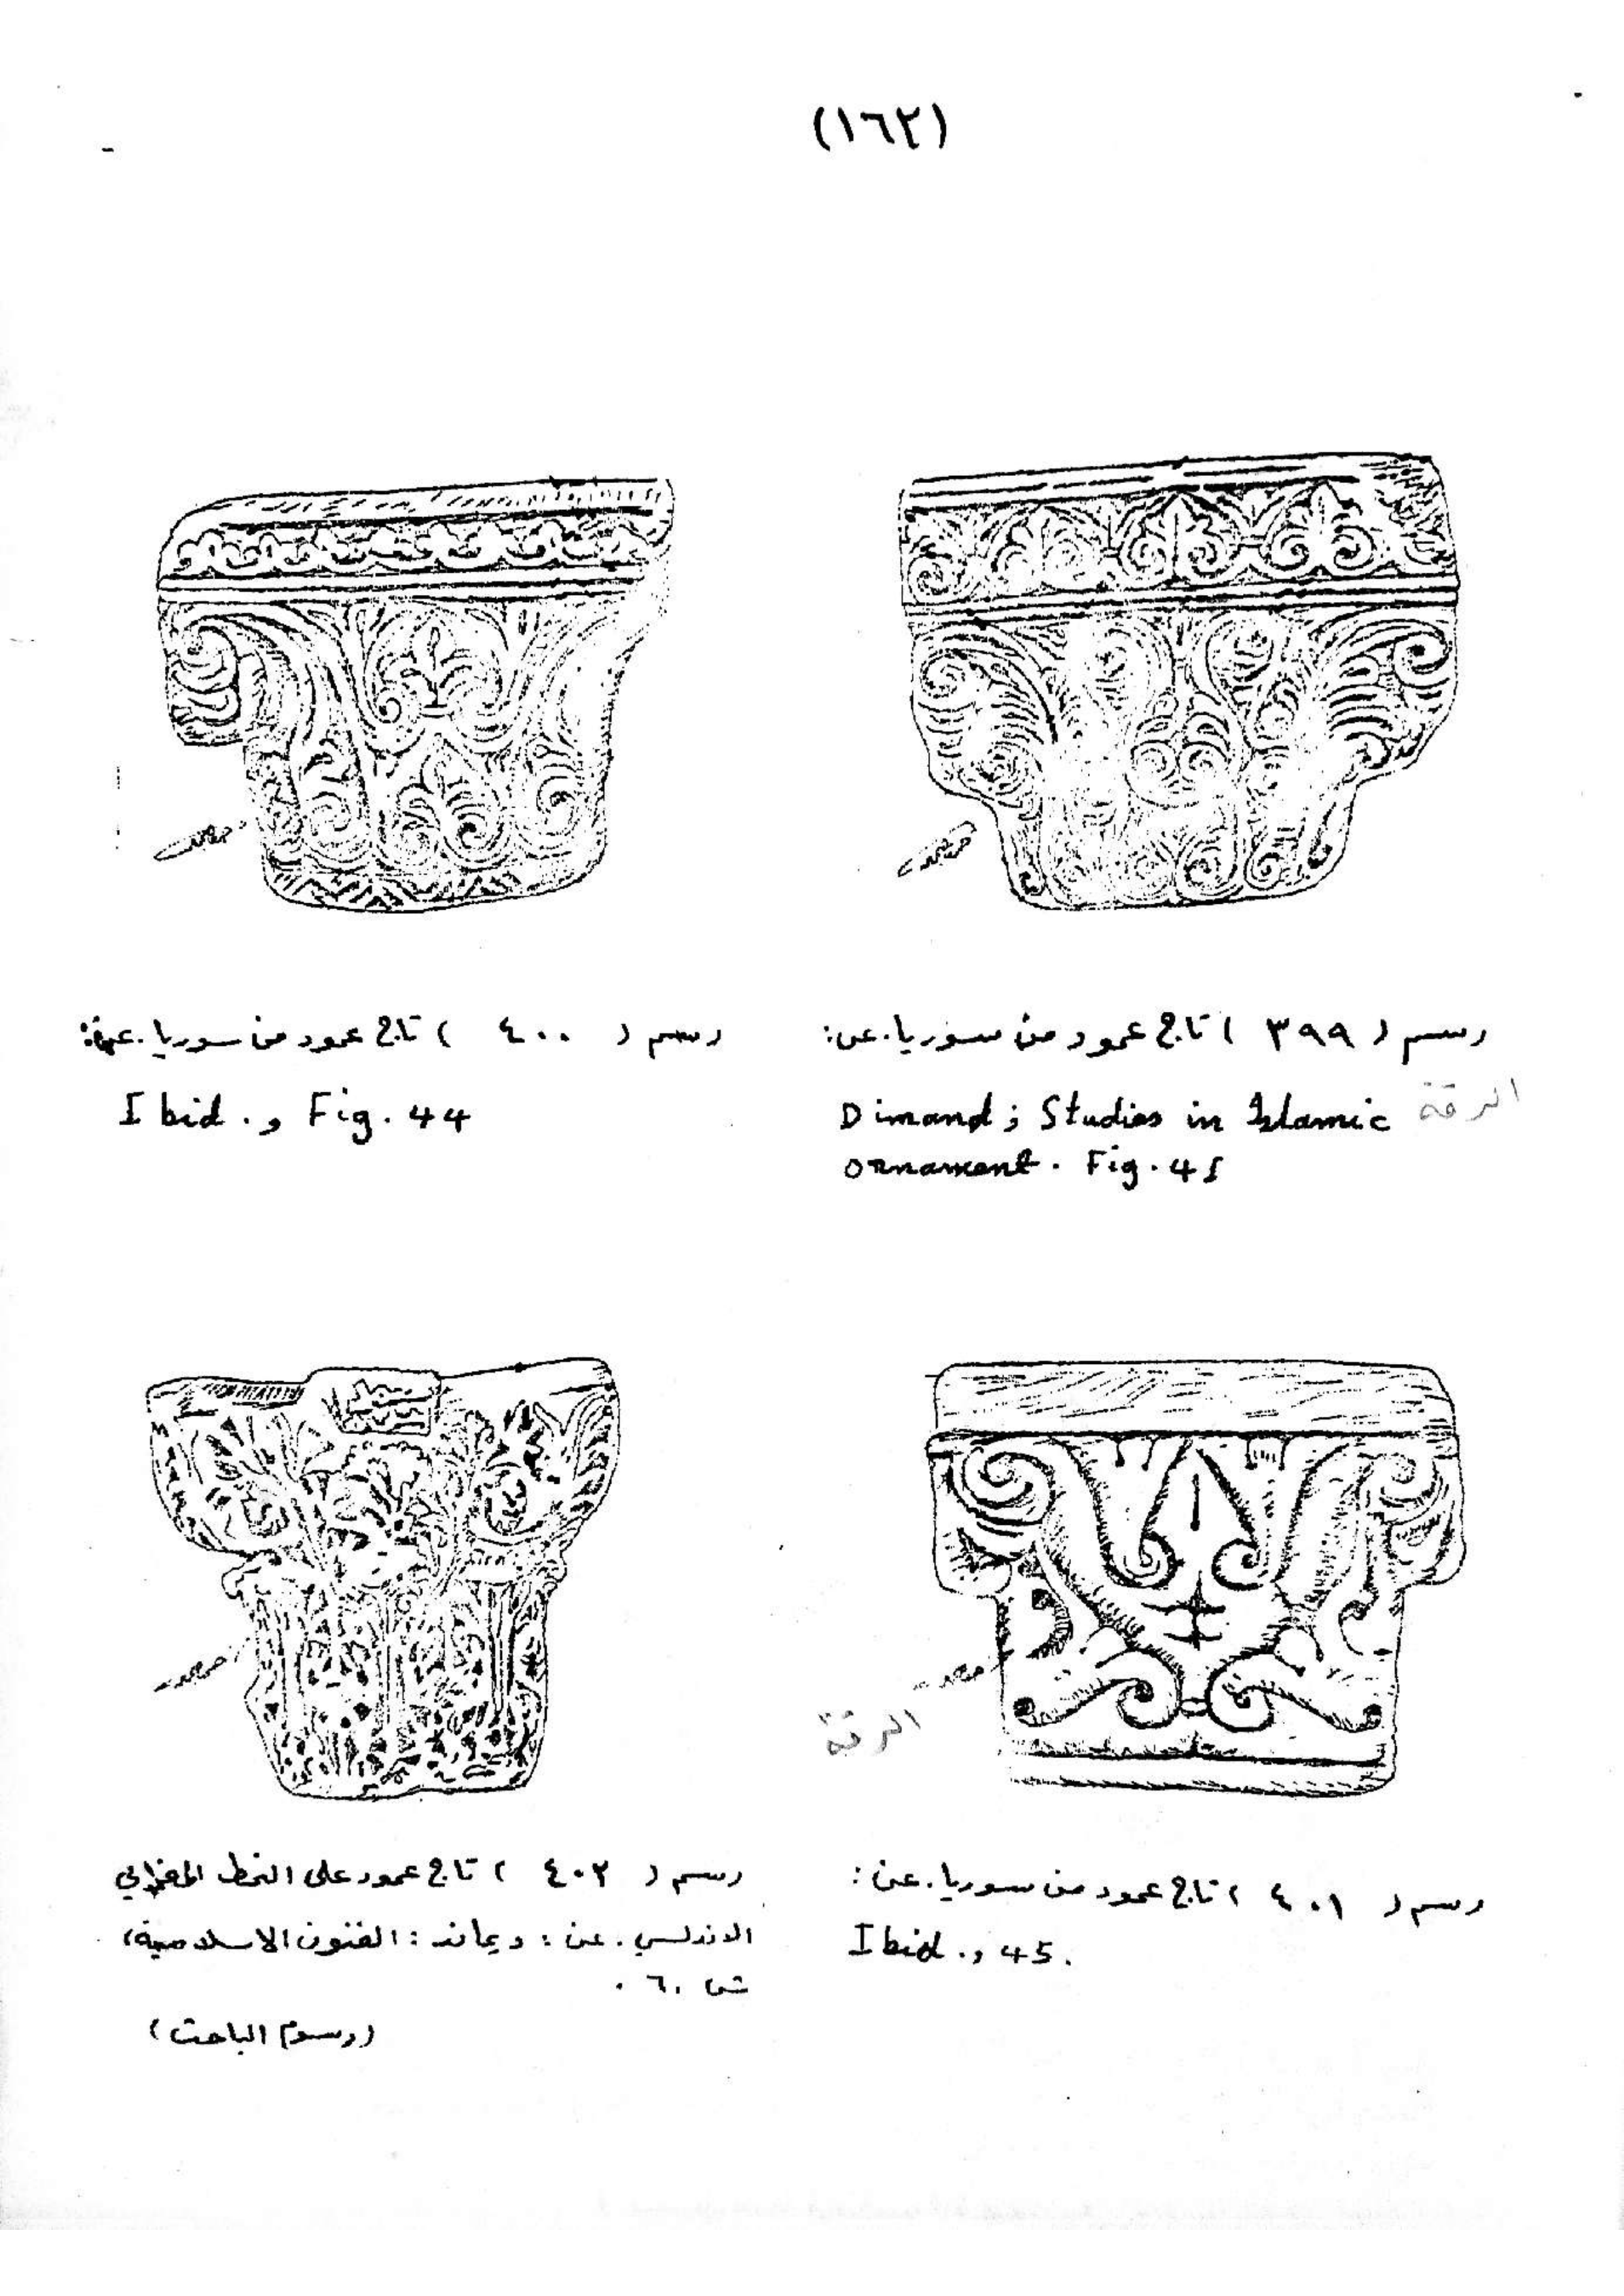 (١٦٢)
رسم ( ٣٩٩ ) تاج عمود من سوريا. عن:
الرقة
Dimand ; Studies in Islamic
ornament. Fig. 41
رسم ( ٤٠٠ ) تاج عمود من سوريا. عن:
Ibid. , Fig. 44
الرقة
رسم ( ٤٠١ ) تاج عمود من سوريا. عن:
Ibid. , 45.
رسم ( ٤٠٢ ) تاج عمود على النمط المغرابي
الاندلسي. عن: ديماند: الفنون الاسلامية،
ش ٦٠ .
(رسوم الباحث)